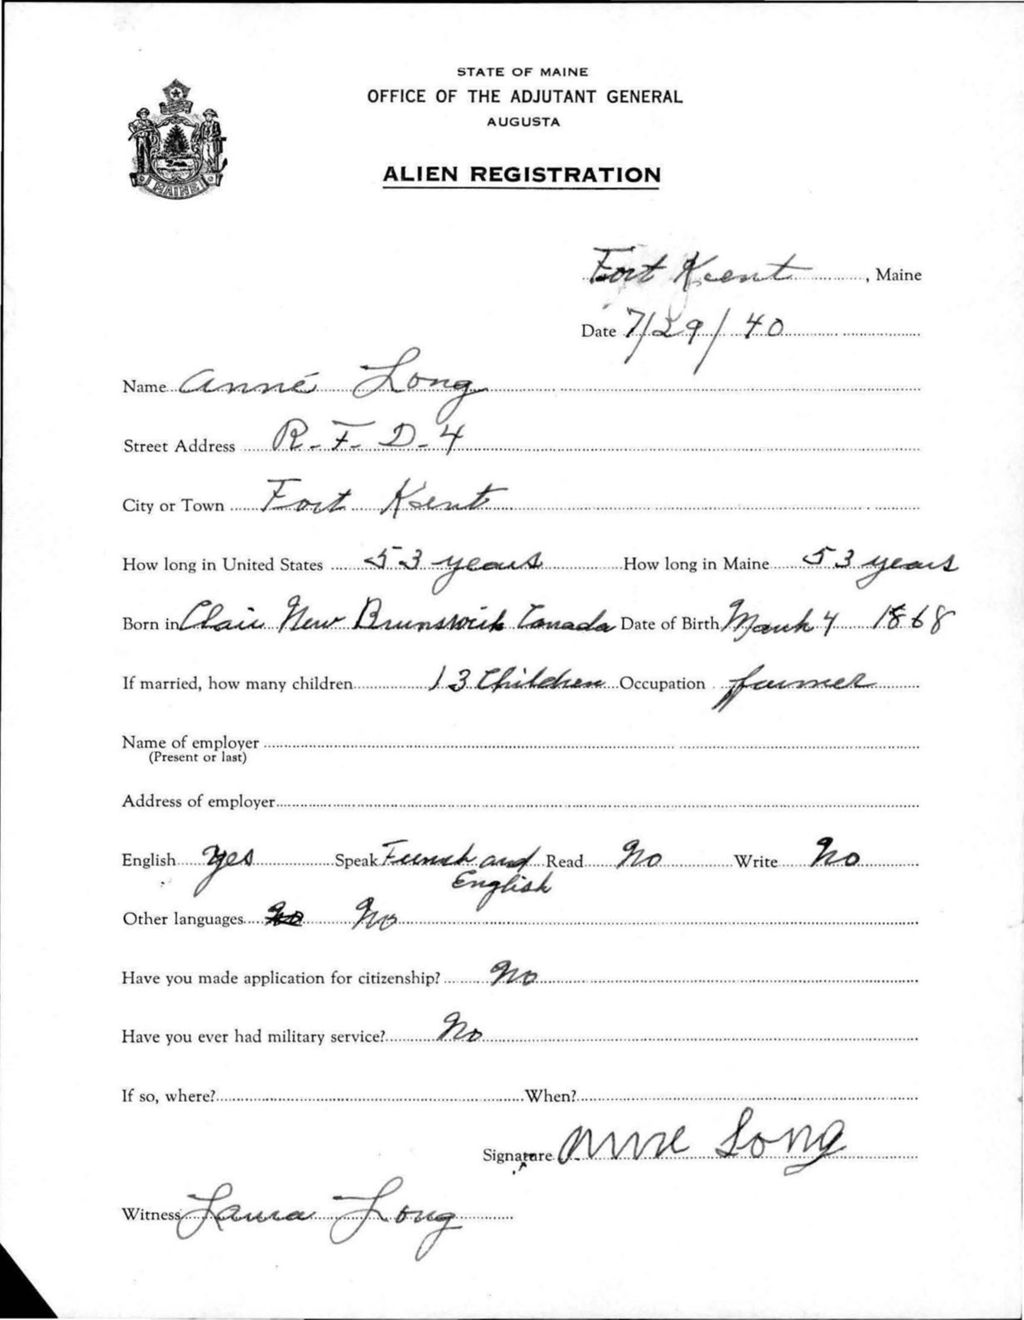 STATE OF MAINE
OFFICE OF THE ADJUTANT GENERAL
AUGUSTA
ALIEN REGISTRATION
MAINE
Fort Kent, Maine
Date 7/29/40
Name Anné Long
Street Address R-F-D-4
City or Town Fort Kent
How long in United States 53 years How long in Maine 53 years
Born in Clair New Brunswick Canada Date of Birth March 4 1868
If married, how many children 13 Children Occupation farmer
Name of employer
(Present or last)
Address of employer
English Yes Speak French and Read No Write No
English
Other languages No No
Have you made application for citizenship? No
Have you ever had military service? No
If so, where? When?
Signature Anne Long
Witness Laura Long